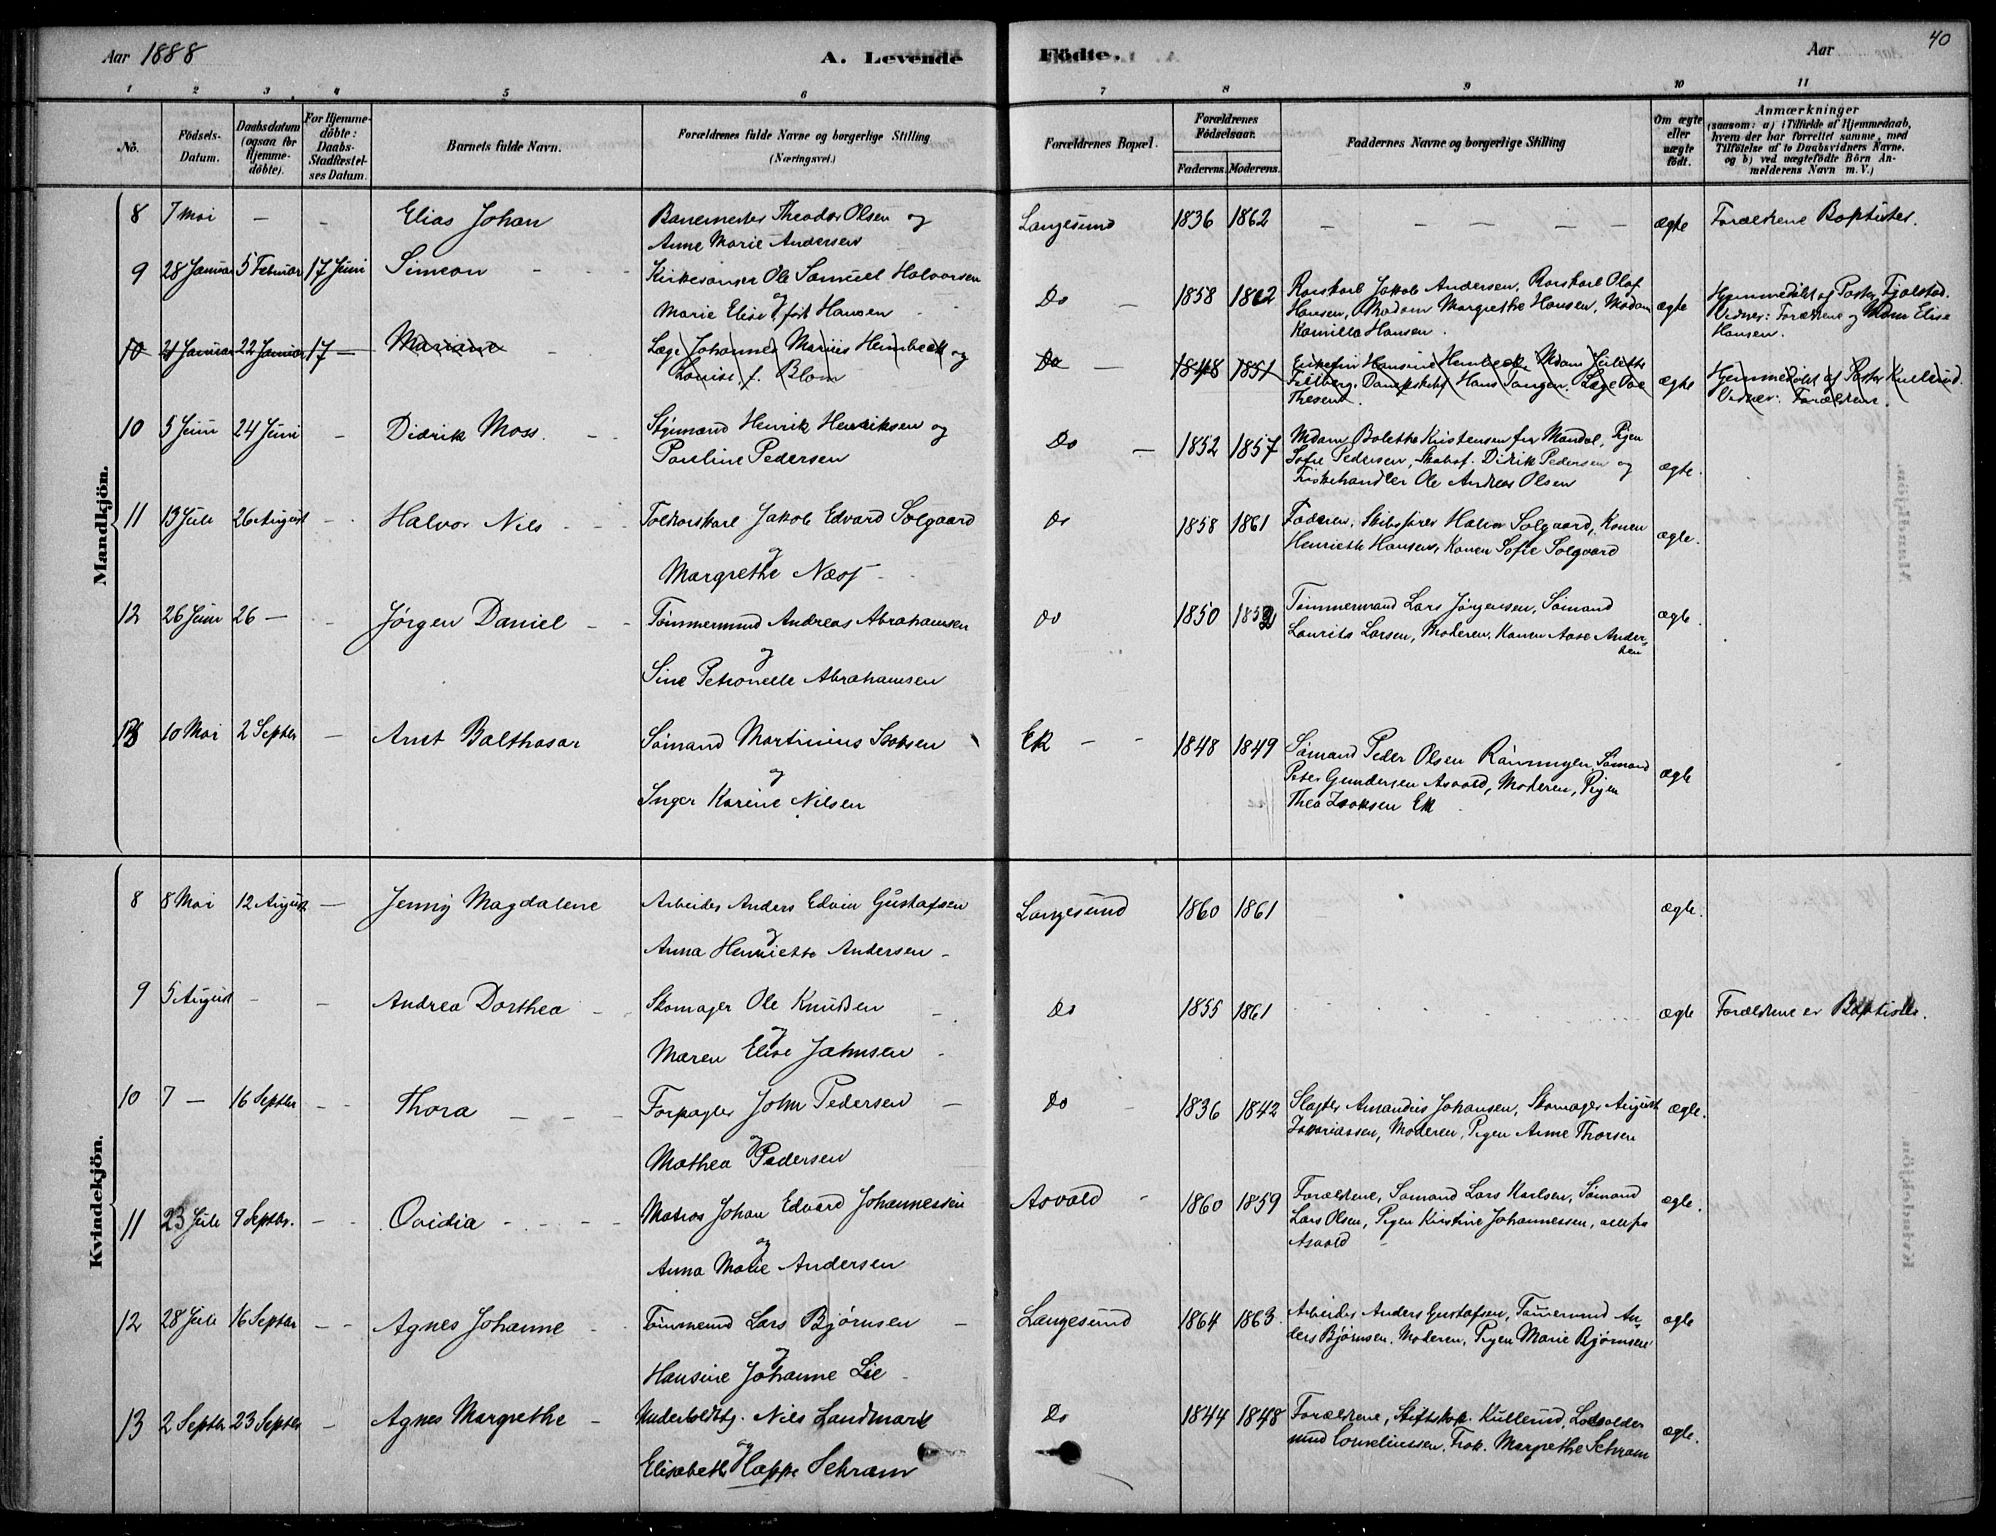 Aar 1888
A. Levende
Födte.
Aar
40
1 2 3 4 5 6 7 8 9 10 11
No.
Födsels-
Datum.
Daabsdatum
(ogsaa for
Hjemme-
döbte).
For Hjemme-
döbte:
Daabs-
Stadfæstel-
ses Datum.
Barnets fulde Navn.
Forældrenes fulde Navne og borgerlige Stilling
(Næringsvei.)
Forældrenes Bopæl.
Forældrenes
Födselsaar.
Faderens. Moderens.
Faddernes Navne og borgerlige Stilling
Om ægte
eller
uægte
födt.
Anmærkninger
(saasom: a) i Tilfælde af Hjemmedaab,
hvem der har forrettet samme, med
Tilföielse af to Daabsvidners Navne.
og b) ved uægtefödte Börn An-
melderens Navn m. V.)
Mandkjön.
8 7 Mai — — Elias Johan
Banemester Theodor Olsen og
Anne Marie Andersen
Langesund 1836 1862 — — — — — ægte Forældrene Baptister.
9 28 Januar 5 Februar 17 Juni Simeon
Kirkesanger Ole Samuel Halvorsen
og
Marie Elise født Hansen
Do 1858 1862
Rorskarl Jakob Andersen, Rorskarl Olaf
Hansen, Madam Margrethe Hansen, Madam
Kamilla Hansen.
ægte
Hjemmedøbt af Pastor Fjølstad.
Vidner: Forældrene og Mdm Elise
Hansen.
10 21 Januar 22 Januar 17 — Mariane
Læge Johannes Marius Heimbeck og
Louise f. Blom
Do 1848 1851
Enkefru Hansine Heimbeck, Mdam Juliette
Fillberg, Dampskibsf Hans Tangen. Læge Ove
Thesen.
ægte
Hjemmedøbt af Pastor Kullerud.
Vidner: Forældrene.
10 5 Juni 24 Juni — Didrik Moss.
Styrmand Henrik Henriksen og
Pauline Pedersen
Do 1852 1857
Mdam Bolette Kristensen fra Mandal, Pigen
Sofie Pedersen, Skibsf. Didrik Pedersen og
Fiskehandler Ole Andreas Olsen
ægte.
11 13 Juli 26 August — Halvor Nils
Toldrorskarl Jakob Edvard Solgaard
og
Margrethe Næss
Do 1858 1861
Faderen, Skibsfører Halvor Solgaard, Konen
Henriette Hansen, Konen Sofie Solgaard
ægte.
12 26 Juni 26 — Jørgen Daniel
Tømmermand Andreas Abrahamsen
og
Sine Petronelle Abrahamsen
Do 1850 1852
Tømmermand Lars Jørgensen, Sømand
Laurits Larsen, Moderen, Konen Aase Ander-
sen
ægte.
13 10 Mai 2 Septbr — Arnt Balthasar
Sømand Martinius Isaksen
og
Inger Karine Nilsen
Ek 1848 1849
Sømand Peder Olsen Rønningen, Sømand
Peter Gundersen Asvald, Moderen, Pigen
Thea Isaksen Ek
ægte
Kvindekjön.
8 8 Mai 12 August — Jenny Magdalene
Arbeider Anders Edvin Gustafsen
og
Anna Henriette Andersen
Langesund 1860 1861 ægte.
9 5 August — — Andrea Dorthea
Skomager Ole Knudsen
og
Maren Elise Jahnsen
Do 1855 1861 ægte Forældrene er Baptister.
10 7 — 16 Septbr — Thora
Forpagter John Pedersen
og
Mathea Pedersen
Do 1836 1842
Slagter Amandus Johansen, Skomager August
Zakariassen, Moderen, Pigen Anne Thorsen
ægte.
11 23 Juli 9 Septbr. — Ovidia
Matros Johan Edvard Johannessen
og
Anna Marie Andersen
Asvald 1860 1859
Forældrene, Sømand Lars Karlsen, Sømand
Lars Olsen, Pigen Kristine Johannessen, alle fra
Asvald
ægte.
12 28 Juli 16 Septbr — Agnes Johanne
Tømmermd Lars Bjørnsen
og
Hansine Johanne Lie
Langesund 1864 1863.
Arbeider Anders Gustafsen, Tømmermd An-
ders Bjørnsen, Moderen, Pigen Marie Bjørnsen
ægte
13 2 Septbr 23 Septbr Agnes Margrethe
Underboldtbj. Nils Landmark
og
Elisabeth Hoppe Schram
Do 1844 1848
Forældrene, Stiftskap. Kullerud, Lodsolder-
mand Corneliussen, Frøk. Margrethe Schram
ægte.